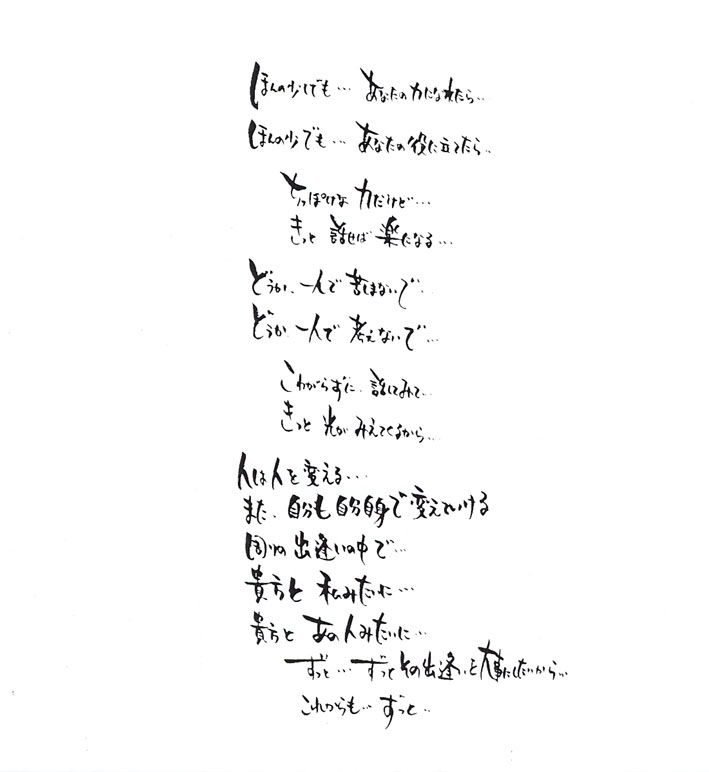 ほんの少しでも… あなたの力になれたら…
ほんの少でも… あなたの役に立てたら…
ちっぽけな 力だけど…
きっと 話せば 楽になる…
どうか、一人で 苦しまないで…
どうか、一人で 考えないで…
こわがらずに、話してみて…
きっと 光が みえてくるから…
人は人を変える…
また、自分も自分自身で変えていける
周りの出逢いの中で…
貴方と 私みたいに…
貴方と あの人みたいに…
ずっと… ずっとその出逢いを大事にしたいから…
これからも… ずっと…